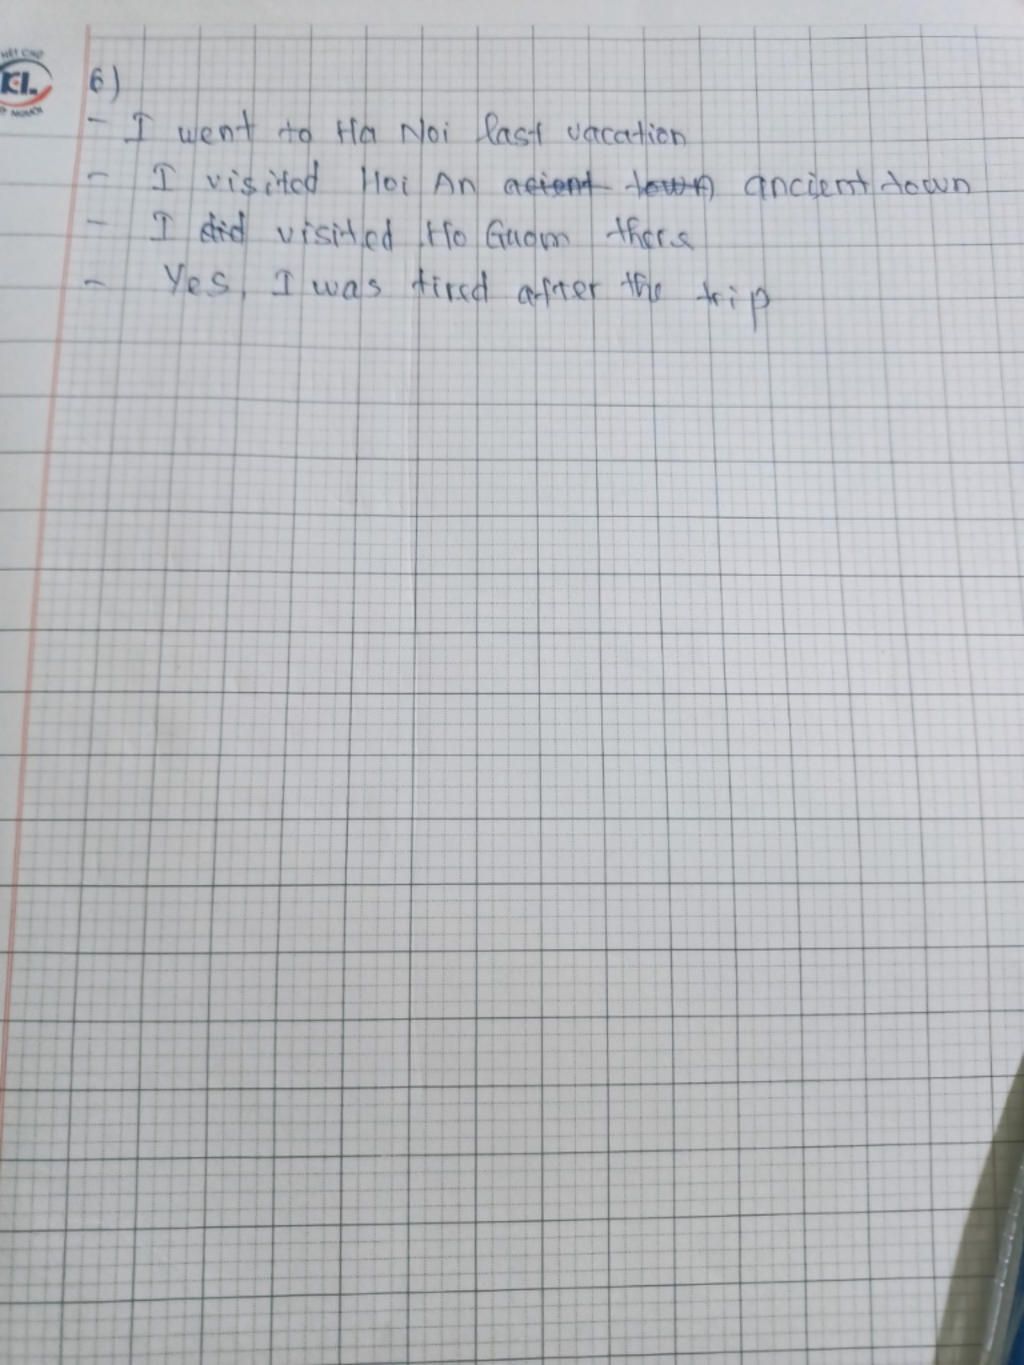 HẾT CHỮ
KL
6)
- I went to Ha Noi last vacation
- I visited Hoi An acient town ancient town
- I did visited Ho Guom there
- Yes, I was tired after the trip